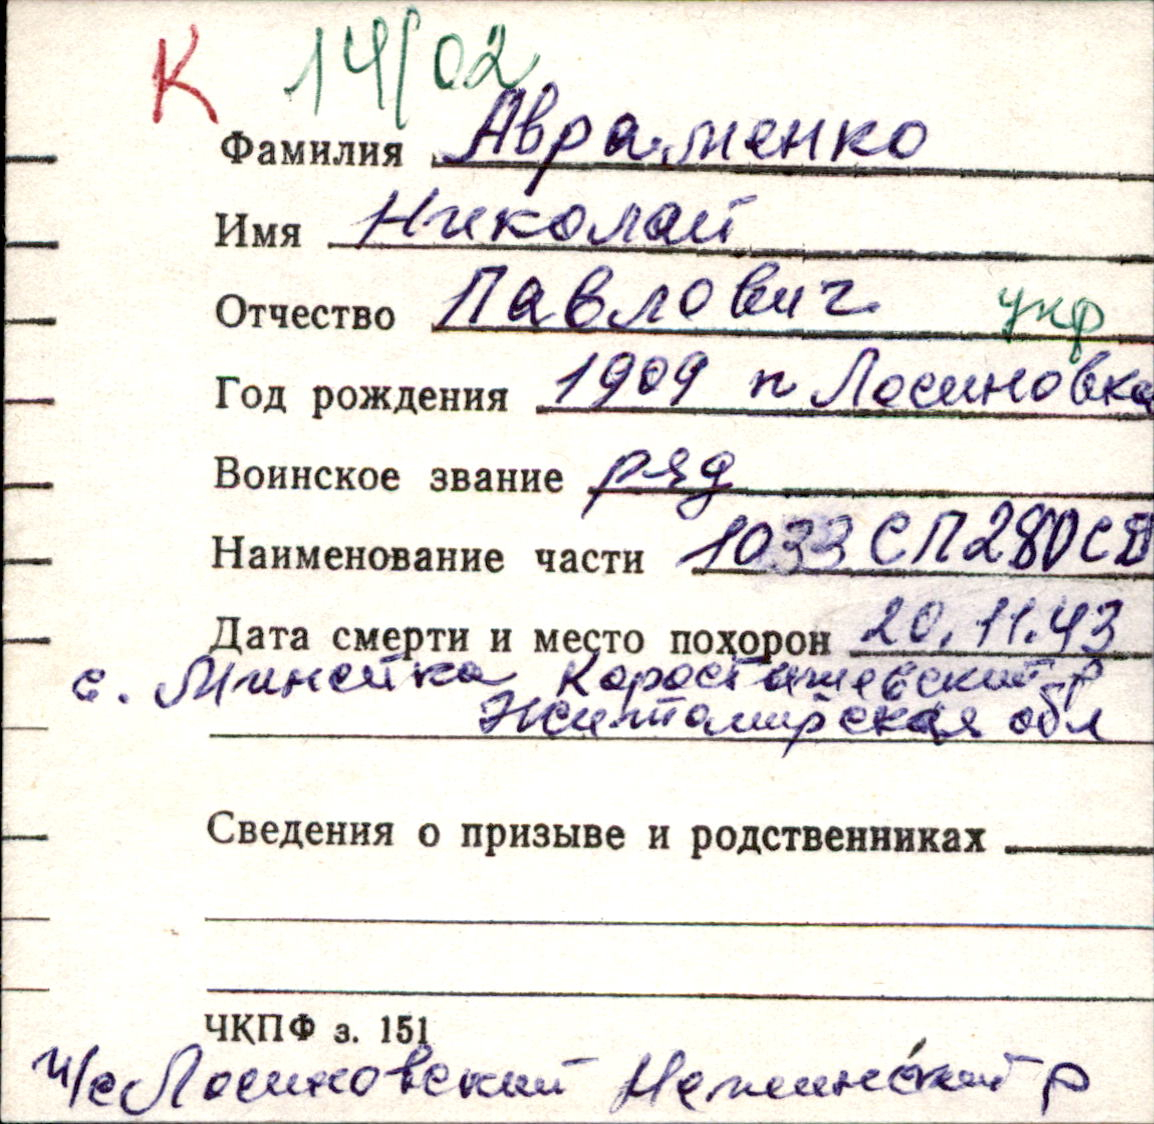 К 14/02
Фамилия Авраменко
Имя Николай
Отчество Павлович укр
Год рождения 1909 п Лосиновка
Воинское звание ряд
Наименование части 1033 СП 280 СД
Дата смерти и место похорон 20.11.43
с. Минейка Коростышевский р
Житомирская обл
Сведения о призыве и родственниках
ЧКПФ з. 151
ч/с Лосиновский Нежинский р